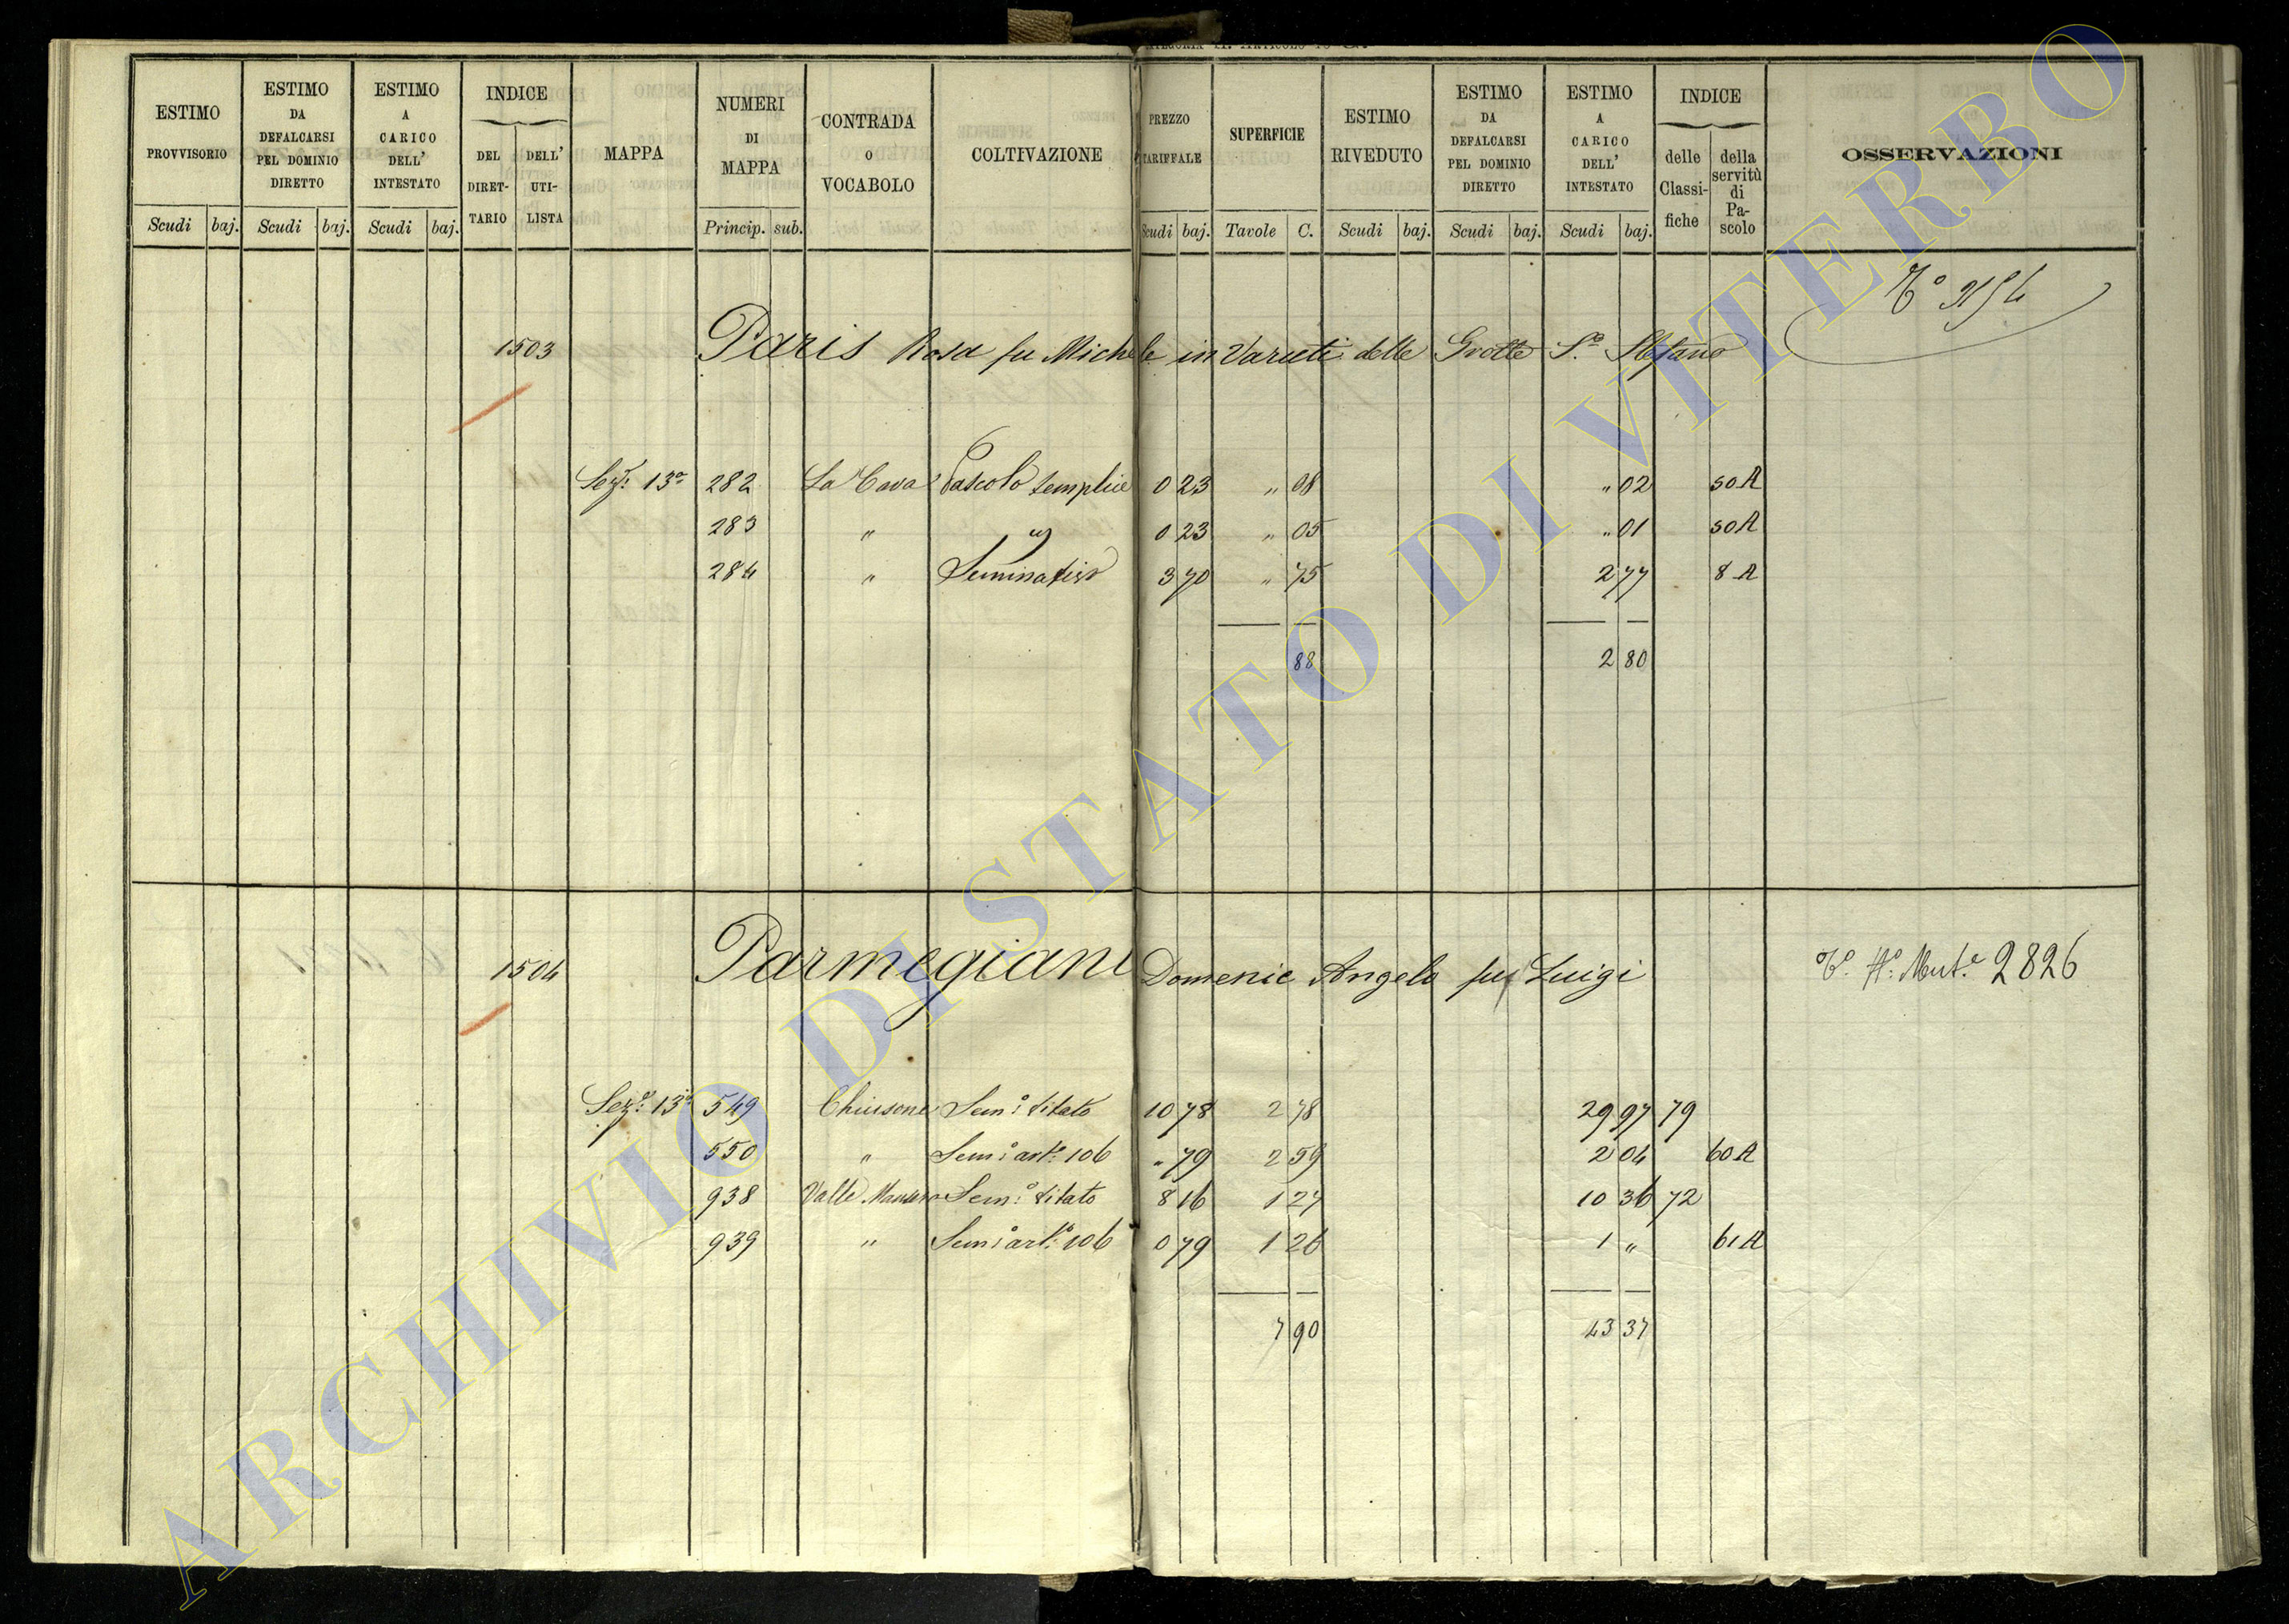 ESTIMO PROVVISORIO Scudi baj.
ESTIMO DA DEFALCARSI PEL DOMINIO DIRETTO Scudi baj.
ESTIMO A CARICO DELL' INTESTATO Scudi baj.
INDICE DEL DIRET-TARIO DELL' UTI-LISTA
MAPPA
NUMERI DI MAPPA Princip. sub.
CONTRADA O VOCABOLO
COLTIVAZIONE
PREZZO TARIFFALE Scudi baj.
SUPERFICIE Tavole C.
ESTIMO RIVEDUTO Scudi baj.
ESTIMO DA DEFALCARSI PEL DOMINIO DIRETTO Scudi baj.
ESTIMO A CARICO DELL' INTESTATO Scudi baj.
INDICE delle Classi-fiche della servitù di Pa-scolo
OSSERVAZIONI
1503 Paris Rosa fu Michele in Varueti delle Grotte S.o Stefano
Sez.e 13a 282 La Cava Pascolo semplice 0 23 " 08 " 02 50 A
283 " " 0 23 " 05 " 01 50 A
284 " Seminativo 3 70 " 75 2 77 8 A
88 2 80
1504 Parmegiani Domenic Angelo fu Luigi 2826
Sez.e 13a 549 Chiusone Sem.o vitato 10 78 2 78 29 97 79
550 " Sem.o art.o 106 " 79 2 59 2 04 60 A
938 Valle Sem.o vitato 8 16 1 27 10 36 72
939 " Sem.o art.o 106 0 79 1 26 1 " 61 A
7 90 43 37
ARCHIVIO DI STATO DI VITERBO